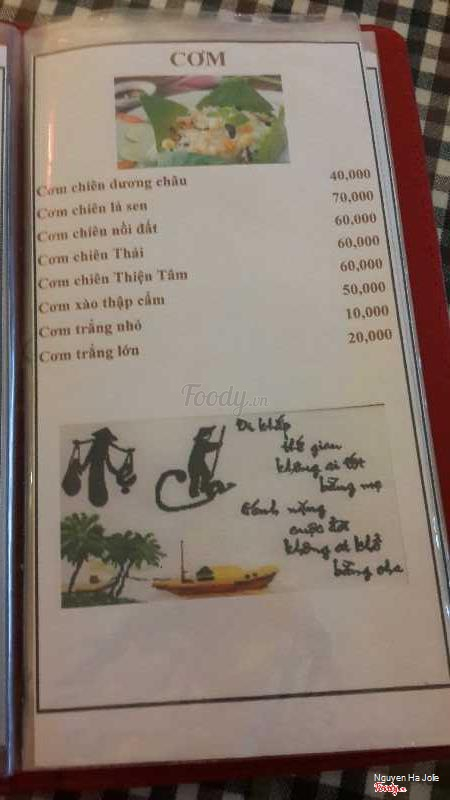 CƠM
Cơm chiên dương châu 40,000
Cơm chiên lá sen 70,000
Cơm chiên nồi đất 60,000
Cơm chiên Thái 60,000
Cơm chiên Thiện Tâm 60,000
Cơm xào thập cẩm 50,000
Cơm trắng nhỏ 10,000
Cơm trắng lớn 20,000
Foody.vn
Mẹ Cha
Đi khắp
thế gian
không ai tốt
bằng mẹ
Gánh nặng
cuộc đời
không ai khổ
bằng cha
Nguyen Ha Jolie
Foody.vn